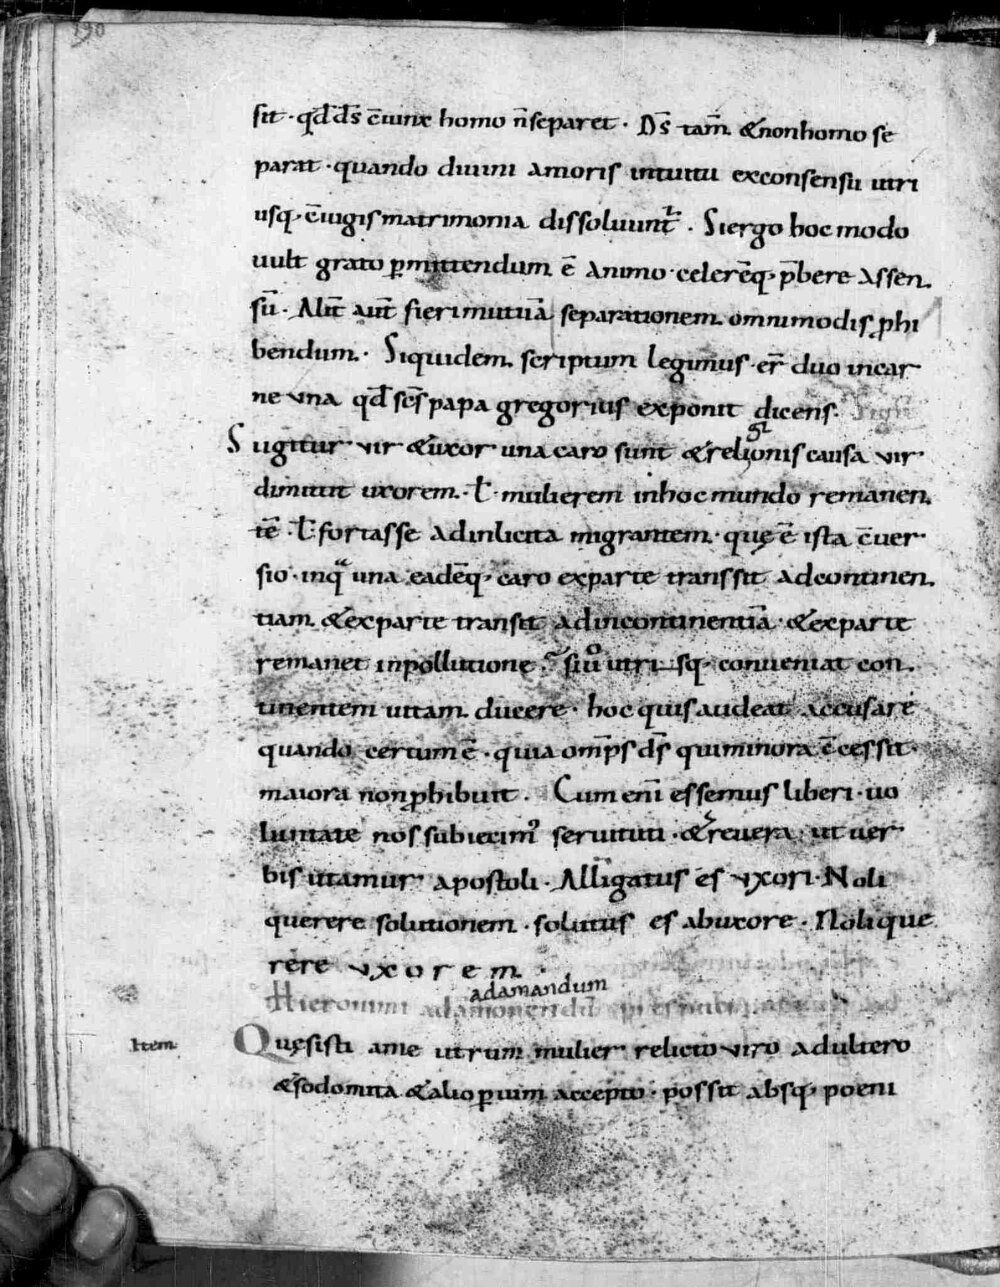 190
sit · qd̄ d̄s c̄iunx homo n̄ separet · D̄s tam̄ & non homo se
parat · quando diuini amoris intuitu ex consensu utri
usq; c̄iugis matrimonia dissoluunt̄ · Si ergo hoc modo
uult grato p̱mittendum ē animo · celerēq; p̄bere assen
sū · Alit̄ aut̄ fieri mutuā separationem omnimodis ꝓhi
bendum · Siquidem scriptum legimus · er̄ duo in car
ne una qd̄ sc̄s papa gregorius exponit dicens ·
Si igitur vir & uxor una caro sunt & religionis causa vir
dimittit uxorem · ł · mulierem in hoc mundo remanen
tē · ł fortasse ad inlicita migrantem · quę ē ista c̄uer
sio · inqͣ una eadēq; caro ex parte transsit ad continen
tiam & ex parte transit ad incontinentiā · & ex parte
remanet in pollutione · siu᷎ͦ utrisq; conueniat con
tinentem uitam ducere · hoc quis audeat accusare
quando certum ē · quia om̄ps d̄s qui minora c̄cessit ·
maiora non ꝓhibuit · Cum enī essemus liberi · uo
luntate nos subiecimꝰ seruituti · & reuera ut uer
bis utamur apostoli · Alligatus es vxori · Noli
querere solutionem · solutus es ab uxore · Noli que
rere vxorem ·
adamandum
Hieronimi ad
Item
Quęsisti a me utrum mulier relicto viro adultero
& sodomita & alio p̱ uim accepto · possit absq; poeni